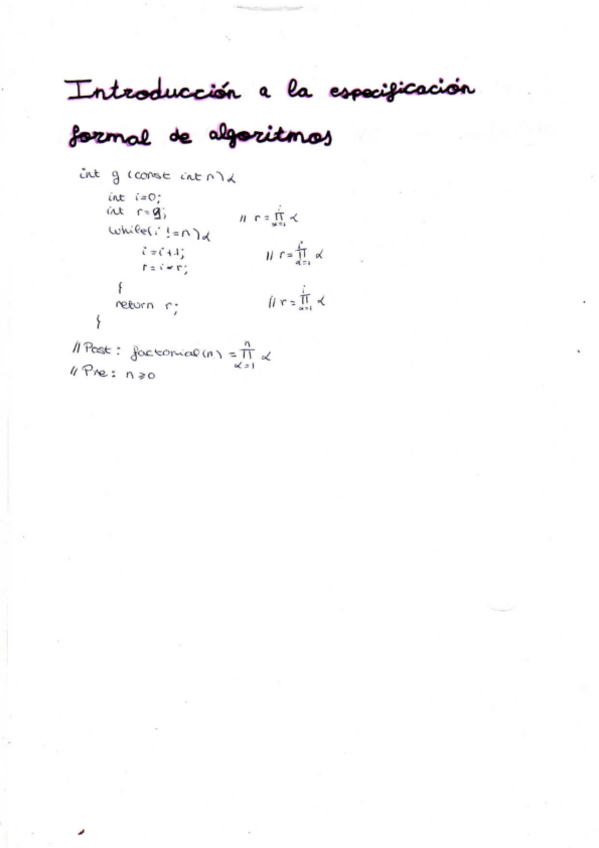 Introducción a la especificación
formal de algoritmos
int g (const int n) {
int i=0;
int r=g; // r = ∏_{α=1}^{i} α
while(i != n) {
i = i+1; // r = ∏_{α=1}^{i} α
r = i*r;
}
return r; // r = ∏_{α=1}^{i} α
}
// Post: factorial(n) = ∏_{α=1}^{n} α
// Pre: n ≥ 0